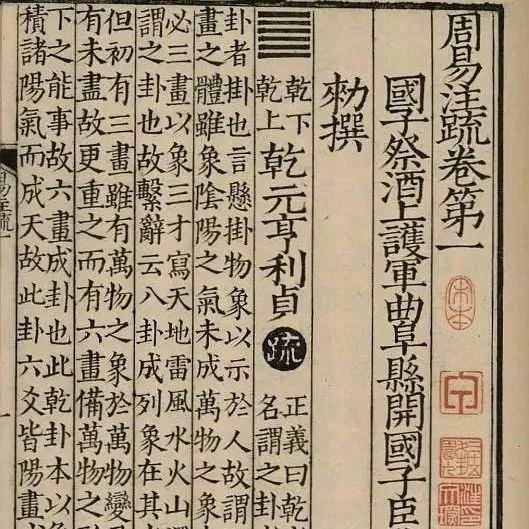 周易注疏卷第一
國子祭酒上護軍曲阜縣開國子臣
勑撰
乾下
乾上
乾元亨利貞
疏
正義曰乾
名謂之卦
卦者掛也言懸掛物象以示於人故謂
畫之體雖象陰陽之氣未成萬物之
必三畫以象三才寫天地雷風水火山
謂之卦也故繫辭云八卦成列象在其
但初有三畫雖有萬物之象於萬物變
有未盡故更重之而有六畫備萬物之
下之能事故六畫成卦也此乾卦本以
積諸陽氣而成天故此卦六爻皆陽畫
易注疏一
宋本